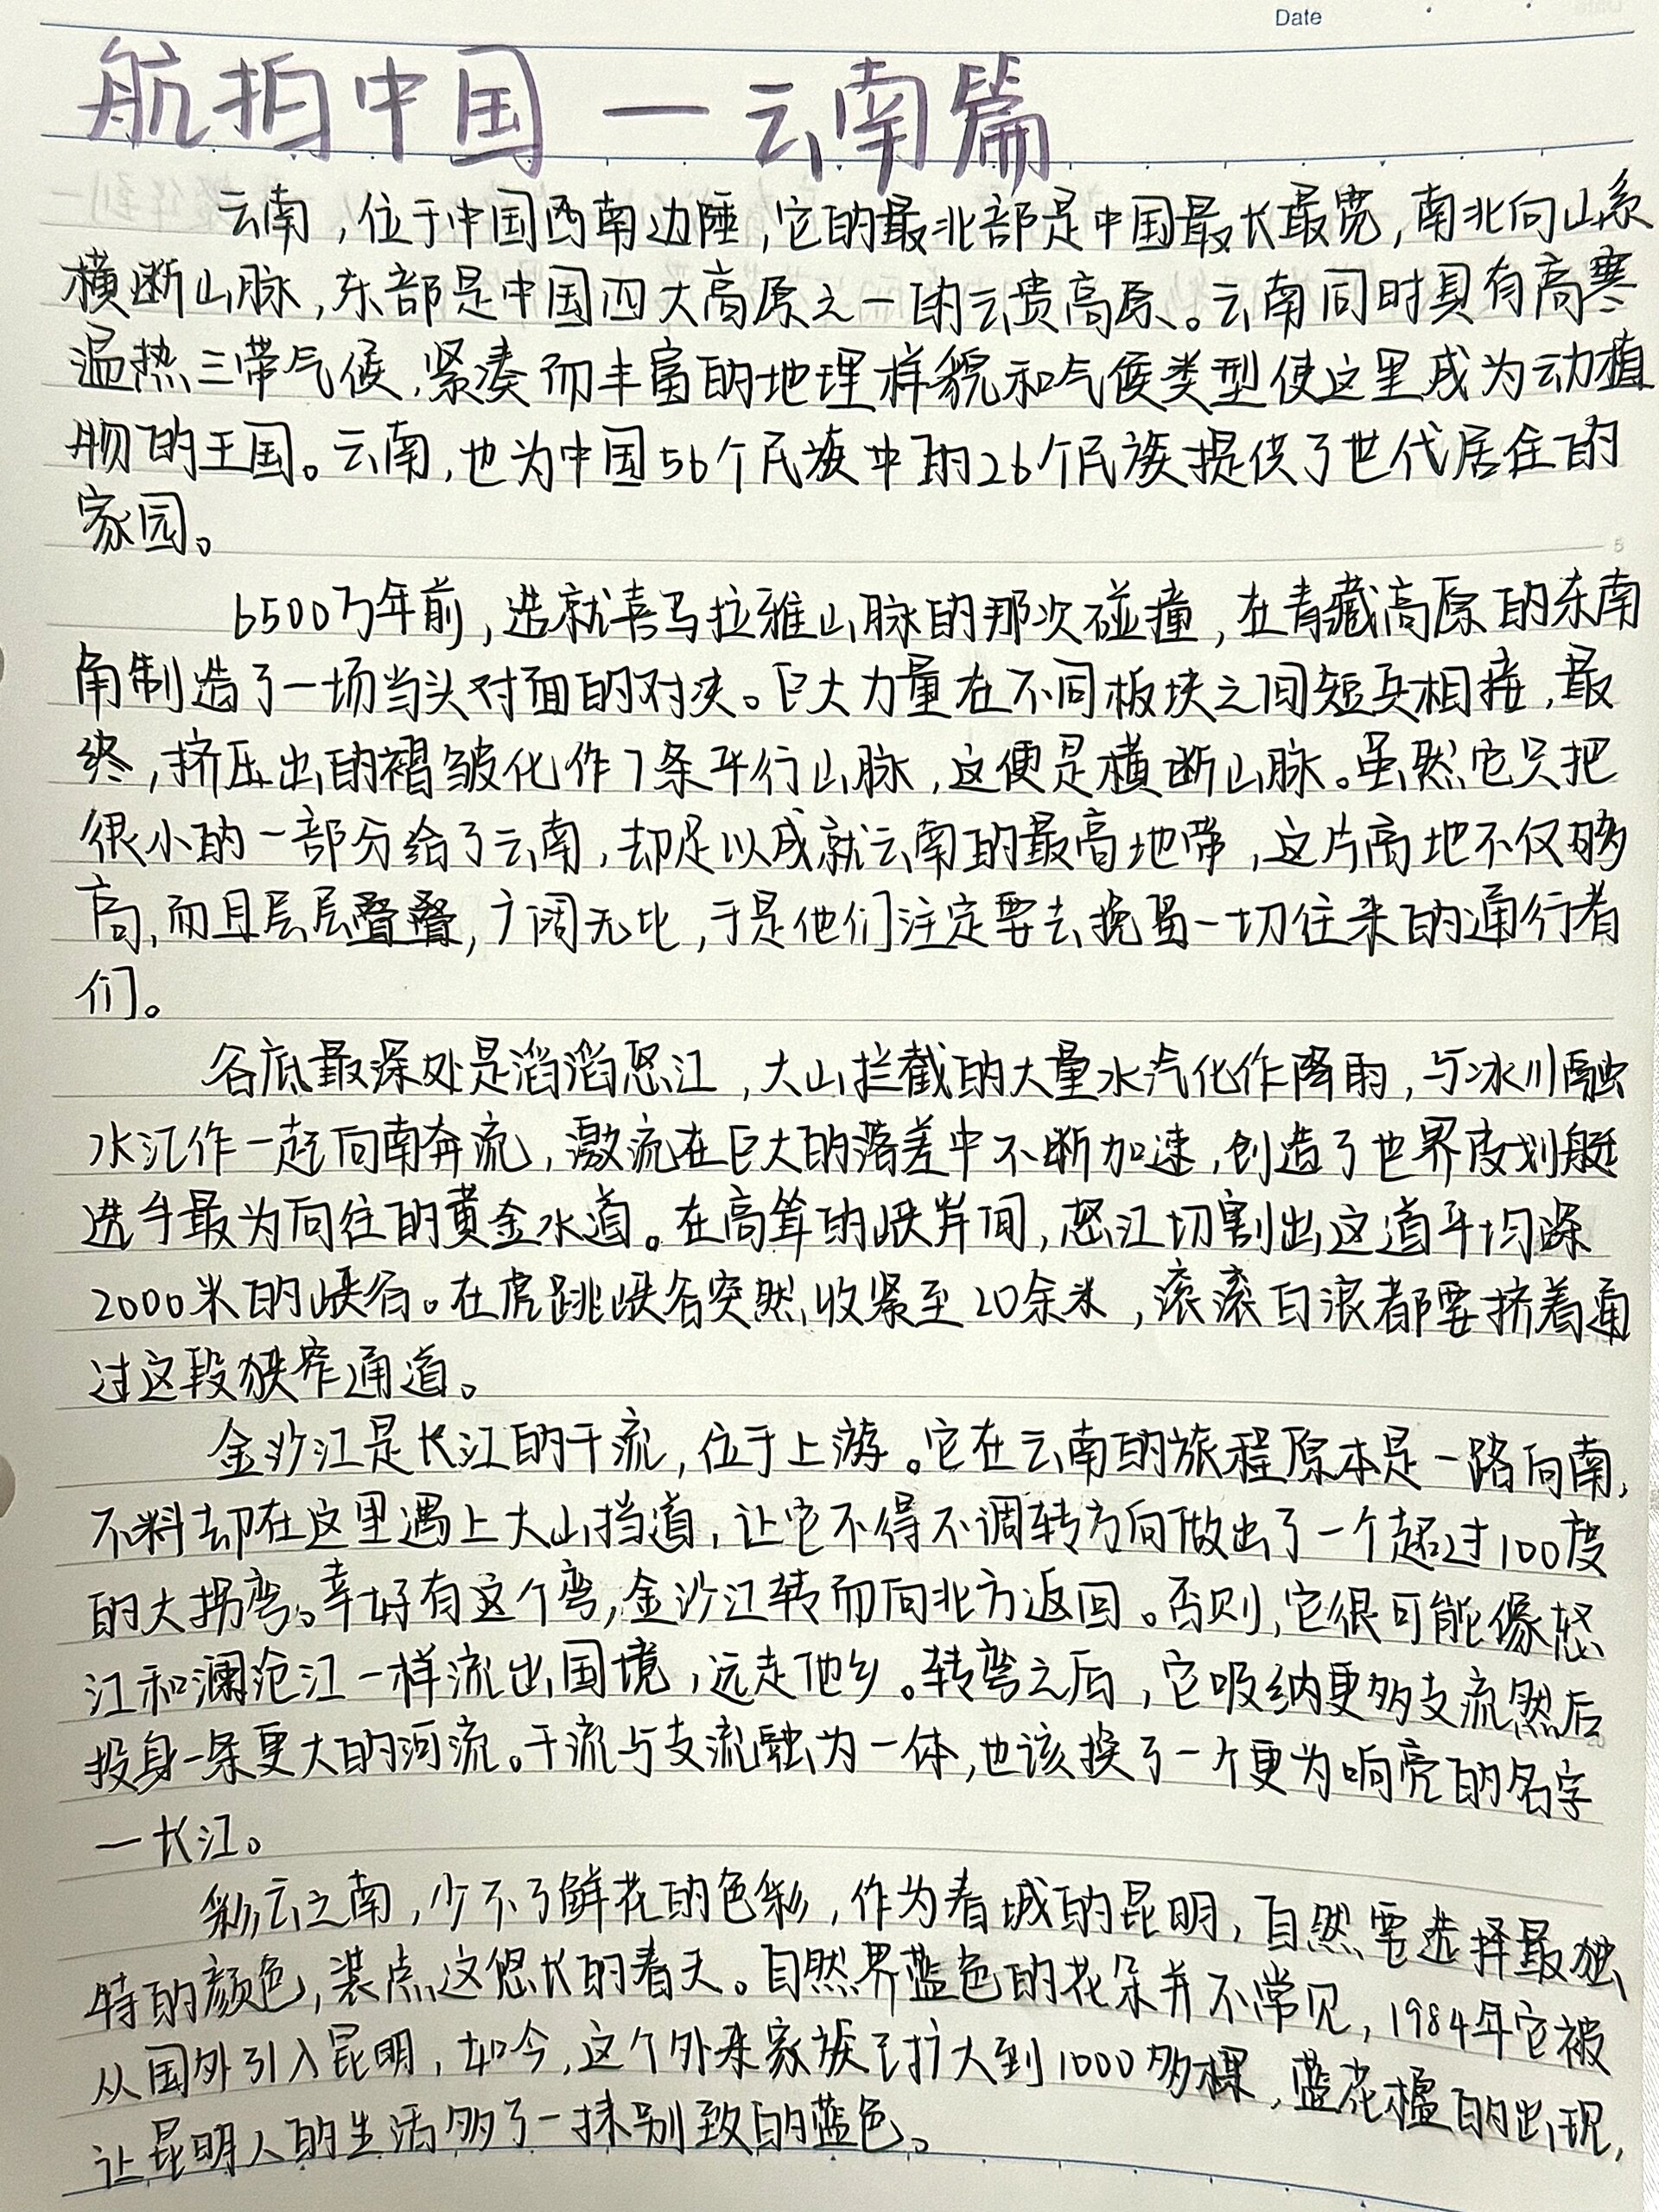 Date
航拍中国一云南篇
云南,位于中国西南边陲,它的最北部是中国最长最宽,南北向山系
横断山脉,东部是中国四大高原之一的云贵高原。云南同时具有高寒
温热三带气候,紧凑而丰富的地理样貌和气候类型使这里成为动植
物的王国。云南,也为中国56个民族中的26个民族提供了世代居住的
家园。
5
6500万年前,造就喜马拉雅山脉的那次碰撞,在青藏高原的东南
角制造了一场当头对面的对决。巨大力量在不同板块之间短兵相接,最
终,挤压出的褶皱化作7条平行山脉,这便是横断山脉。虽然它只把
很小的一部分给了云南,却足以成就云南的最高地带,这片高地不仅够
高,而且层层叠叠,广阔无比,于是他们注定要去挽留一切往来的通行者
们。
谷底最深处是滔滔怒江,大山拦截的大量水汽化作降雨,与冰川融
水汇作一起向南奔流,激流在巨大的落差中不断加速,创造了世界皮划艇
选手最为向往的黄金水道。在高耸的峡岸间,怒江切割出这道平均深
2000米的峡谷。在虎跳峡谷突然收紧至20余米,滚滚白浪都要挤着通
过这段狭窄通道。
金沙江是长江的干流,位于上游。它在云南的旅程原本是一路向南,
不料却在这里遇上大山挡道,让它不得不调转方向做出了一个超过100度
的大拐弯。幸好有这个弯,金沙江转而向北方返回。否则,它很可能像怒
江和澜沧江一样流出国境,远走他乡。转弯之后,它吸纳更多支流然后
投身一条更大的河流。干流与支流融为一体,也该换了一个更为响亮的名字
20
一长江。
彩云之南,少不了鲜花的色彩,作为春城的昆明,自然要选择最独
特的颜色,装点这悠长的春天。自然界蓝色的花朵并不常见,1984年它被
从国外引入昆明,如今,这个外来家族已扩大到1000多棵,蓝花楹的出现,
让昆明人的生活多了一抹别致的蓝色。